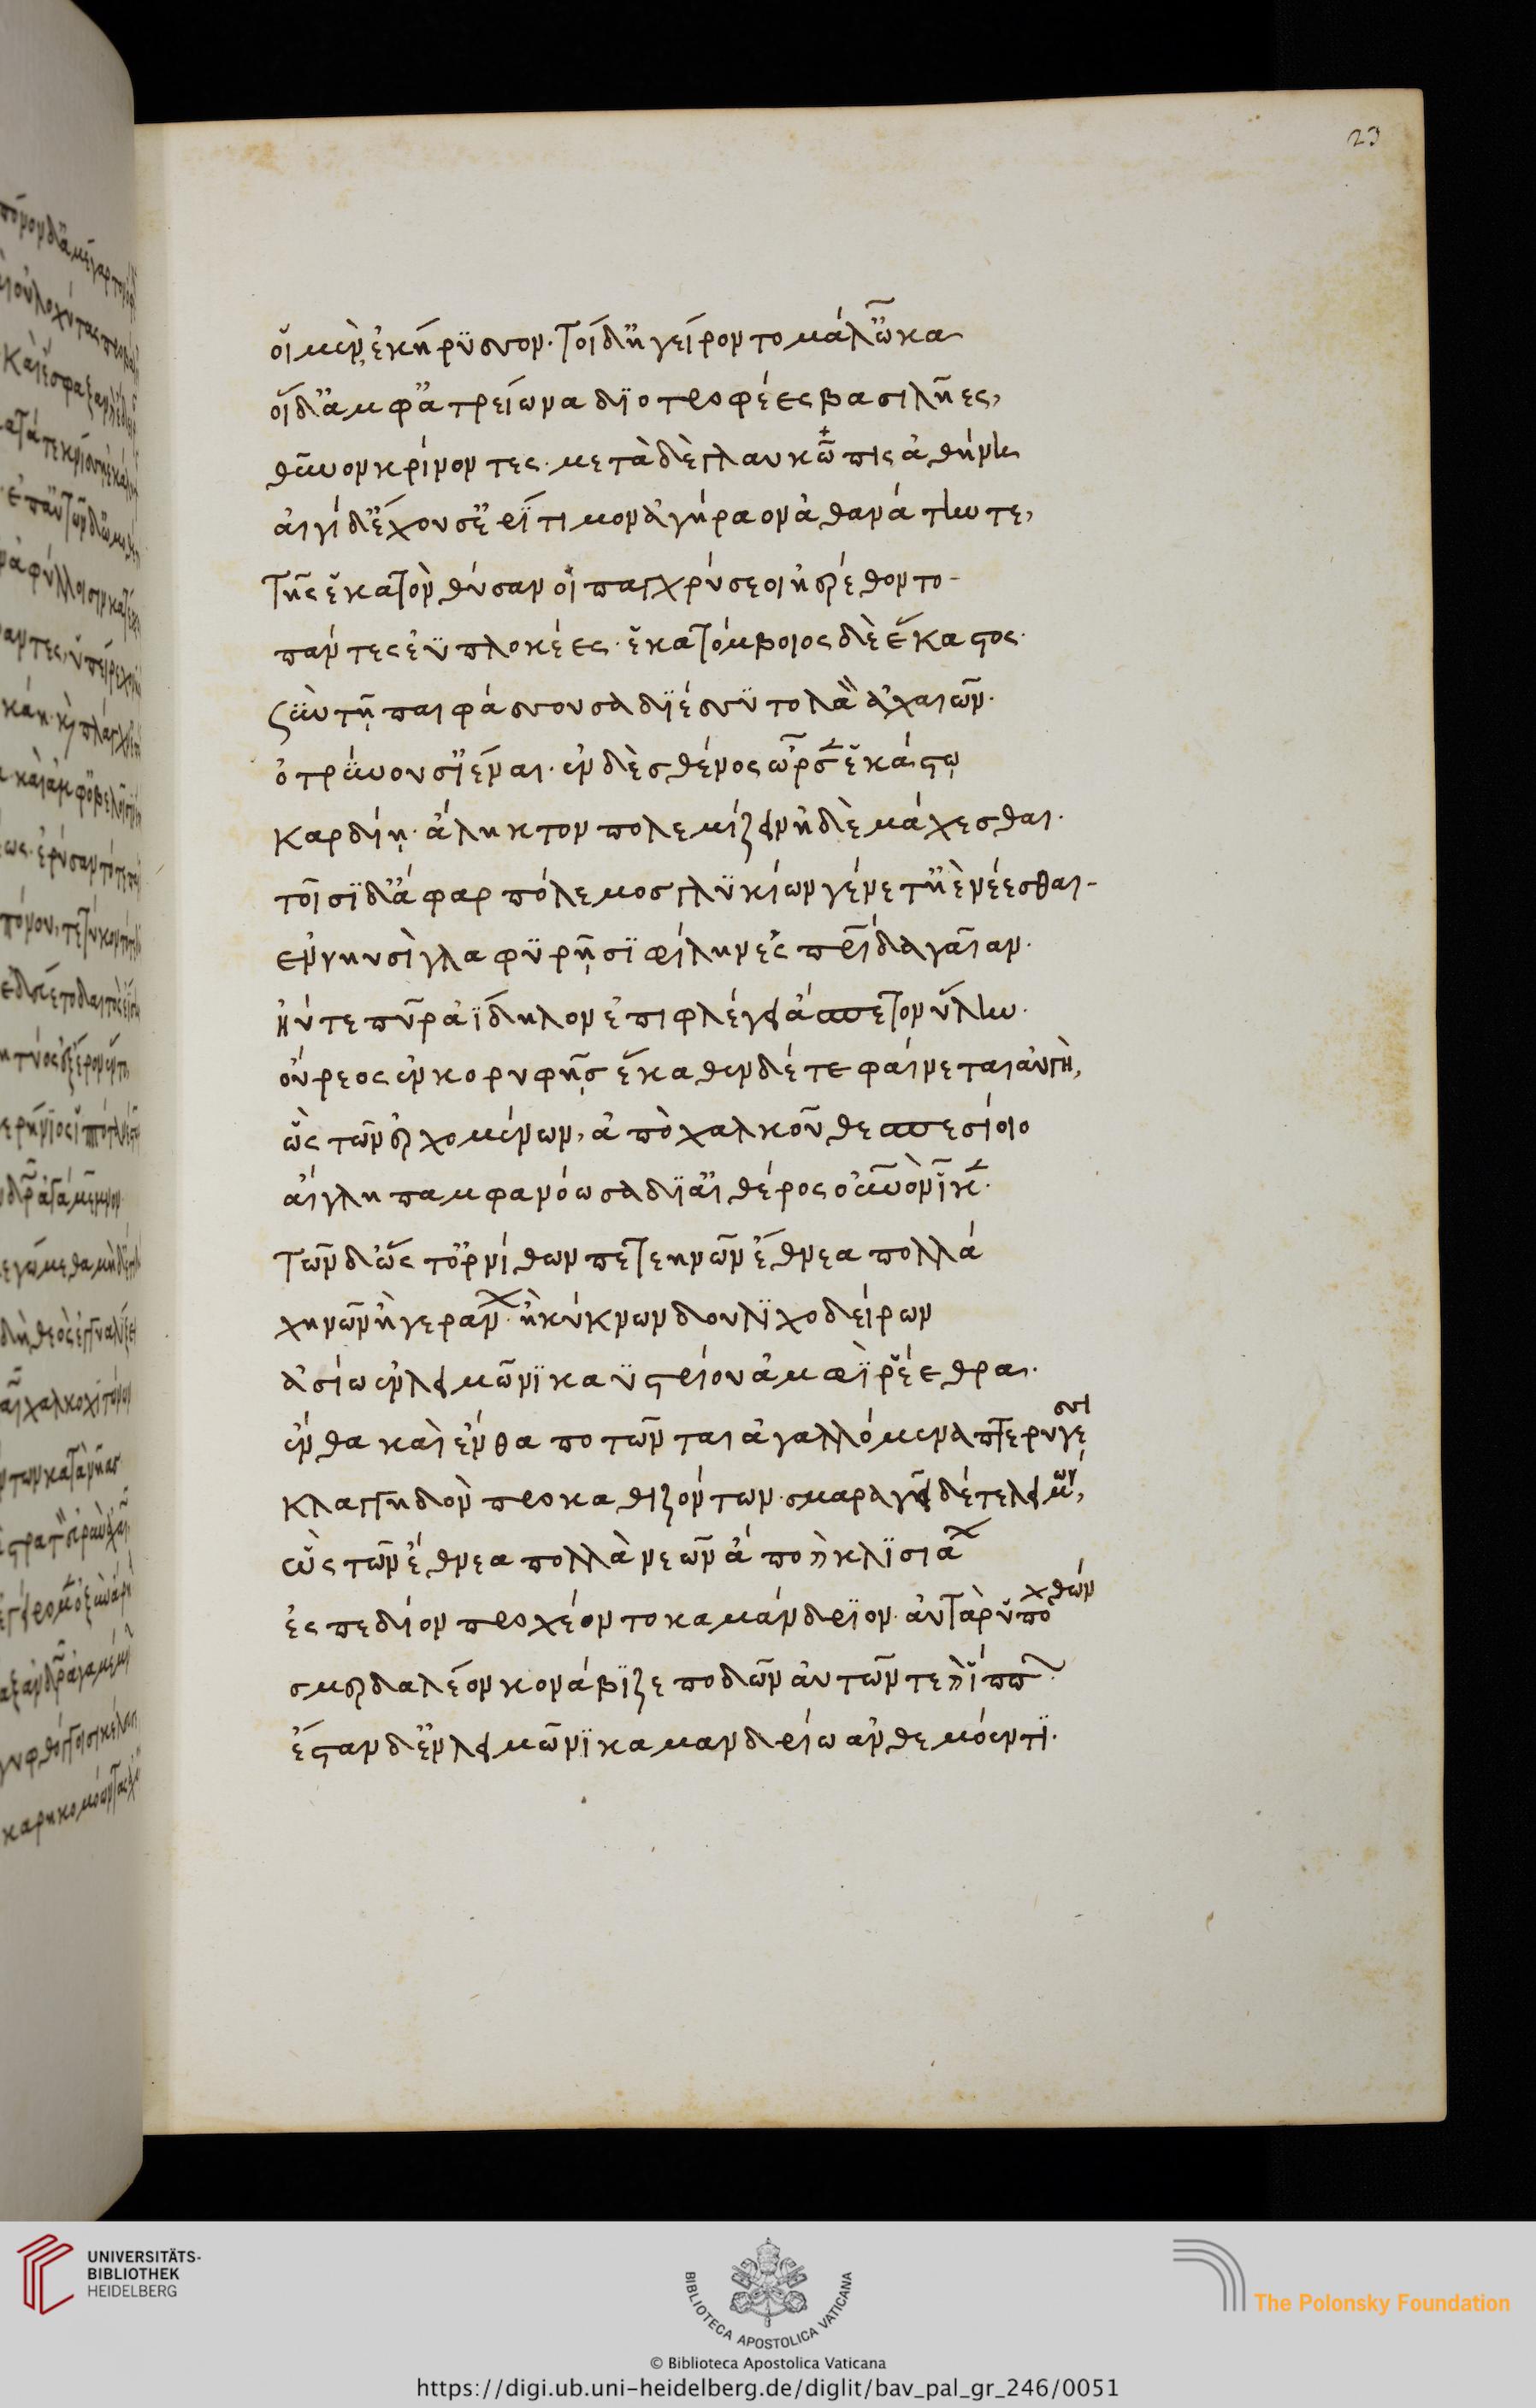 οἳ μὲν ἐκήρυσσον. τοὶ δ' ἠγείροντο μάλ' ὦκα
οἱ δ' ἀμφ' ἀτρείωνα διοτρεφέες βασιλῆες,
θῦνον κρίνοντες. μετὰ δὲ γλαυκῶπις ἀθήνη
αἰγίδ' ἔχουσ' ἐρίτιμον ἀγήραον ἀθανάτην τε,
τῆς ἑκατὸν θύσανοι παγχρύσεοι ἠερέθοντο
πάντες ἐϋπλοκέες. ἑκατόμβοιος δὲ ἕκαστος.
σὺν τῇ παιφάσσουσα διέσσυτο λαὸν ἀχαιῶν.
ὀτρύνουσ' ἰέναι. ἐν δὲ σθένος ὦρσεν ἑκάστῳ
καρδίῃ. ἄληκτον πολεμίζειν ἠδὲ μάχεσθαι.
τοῖσι δ' ἄφαρ πόλεμος γλυκίων γένετ' ἠὲ νέεσθαι
ἐν νηυσὶ γλαφυρῇσι φίλην ἐς πατρίδα γαῖαν.
ἠύτε πῦρ ἀΐδηλον ἐπιφλέγει ἄσπετον ὕλην.
οὔρεος ἐν κορυφῇς ἕκαθεν δέ τε φαίνεται αὐγή,
ὣς τῶν ἐρχομένων, ἀπὸ χαλκοῦ θεσπεσίοιο
αἴγλη παμφανόωσα δι' αἰθέρος οὐρανὸν ἷκεν.
τῶν δ' ὥς τ' ὀρνίθων πετεηνῶν ἔθνεα πολλά
χηνῶν ἢ γεράνων. ἢ κύκνων δουλιχοδείρων
ἀσίω ἐν λειμῶνι καϋστρίου ἀμφὶ ῥέεθρα.
ἔνθα καὶ ἔνθα ποτῶνται ἀγαλλόμενα πτερύγεσσι
κλαγγηδὸν προκαθιζόντων. σμαραγεῖ δέ τε λειμών,
ὣς τῶν ἔθνεα πολλὰ νεῶν ἄπο καὶ κλισιάων
ἐς πεδίον προχέοντο σκαμάνδριον. αὐτὰρ ὑπὸ χθών
σμερδαλέον κονάβιζε ποδῶν αὐτῶν τε καὶ ἵππων.
ἔσταν δ' ἐν λειμῶνι σκαμανδρίω ἀνθεμόεντι.
23
UNIVERSITÄTS-
BIBLIOTHEK
HEIDELBERG
BIBLIOTECA APOSTOLICA VATICANA
The Polonsky Foundation
© Biblioteca Apostolica Vaticana
https://digi.ub.uni-heidelberg.de/diglit/bav_pal_gr_246/0051